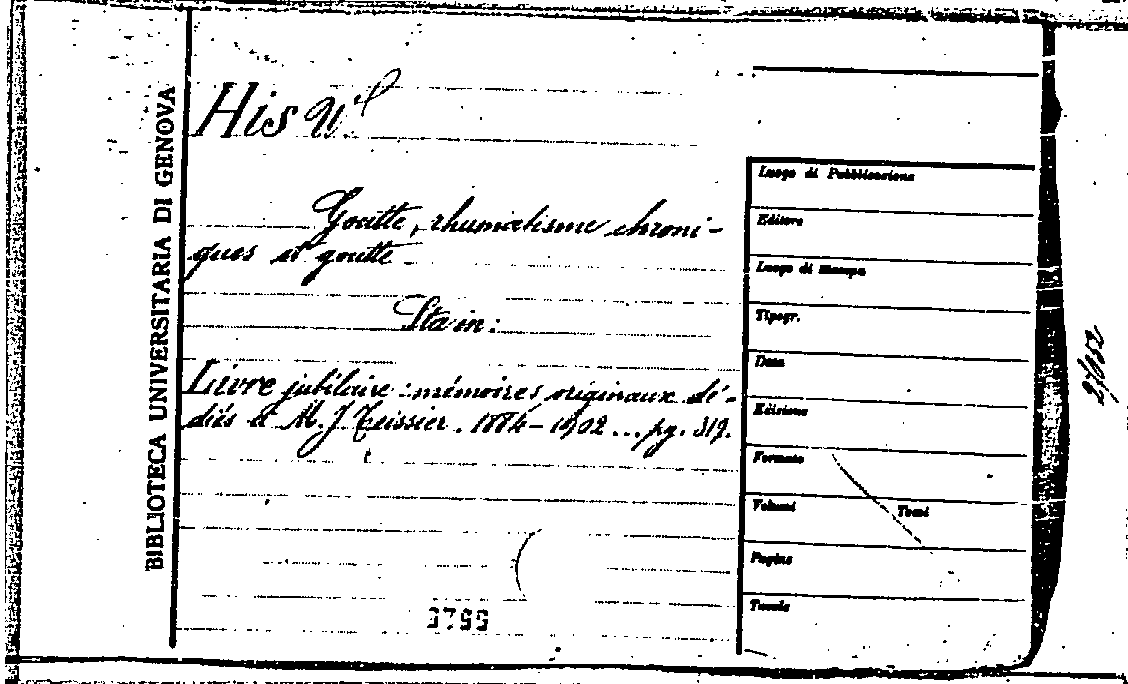 BIBLIOTECA UNIVERSITARIA DI GENOVA
His W.
Goutte, rhumatisme chroni-
ques et goutte
Sta in:
Livre jubilaire: mémoires originaux dé-
diés à M. J Teissier. 1884-1902 ... pg. 319.
Luogo di Pubblicazione
Editore
Luogo di stampa
Tipogr.
Data
Edizione
Formato
Volumi Tomi
Pagine
Tavole